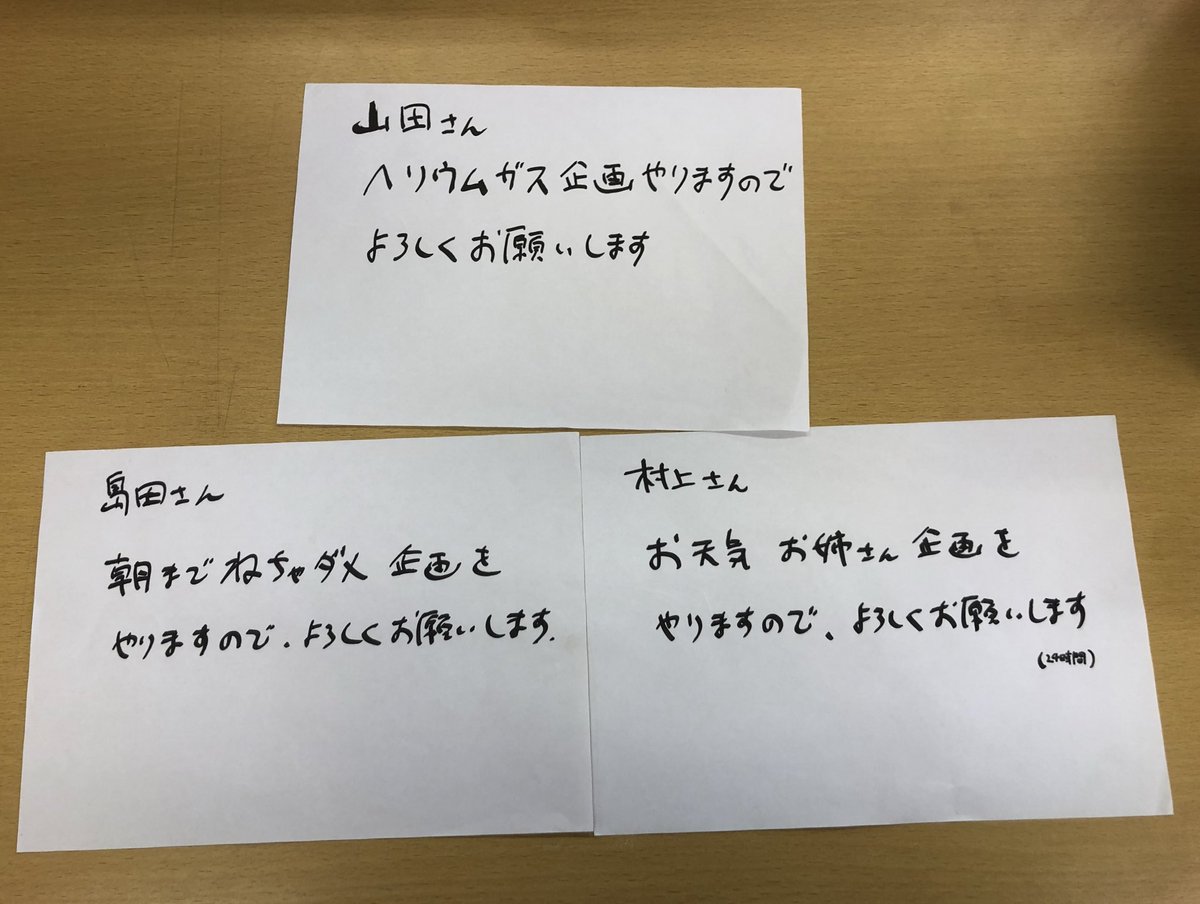 山田さん
ヘリウムガス企画やりますので
よろしくお願いします
島田さん
朝までねちゃダメ 企画を
やりますので、よろしくお願いします.
村上さん
お天気 お姉さん 企画を
やりますので、よろしくお願いします
(24時間)